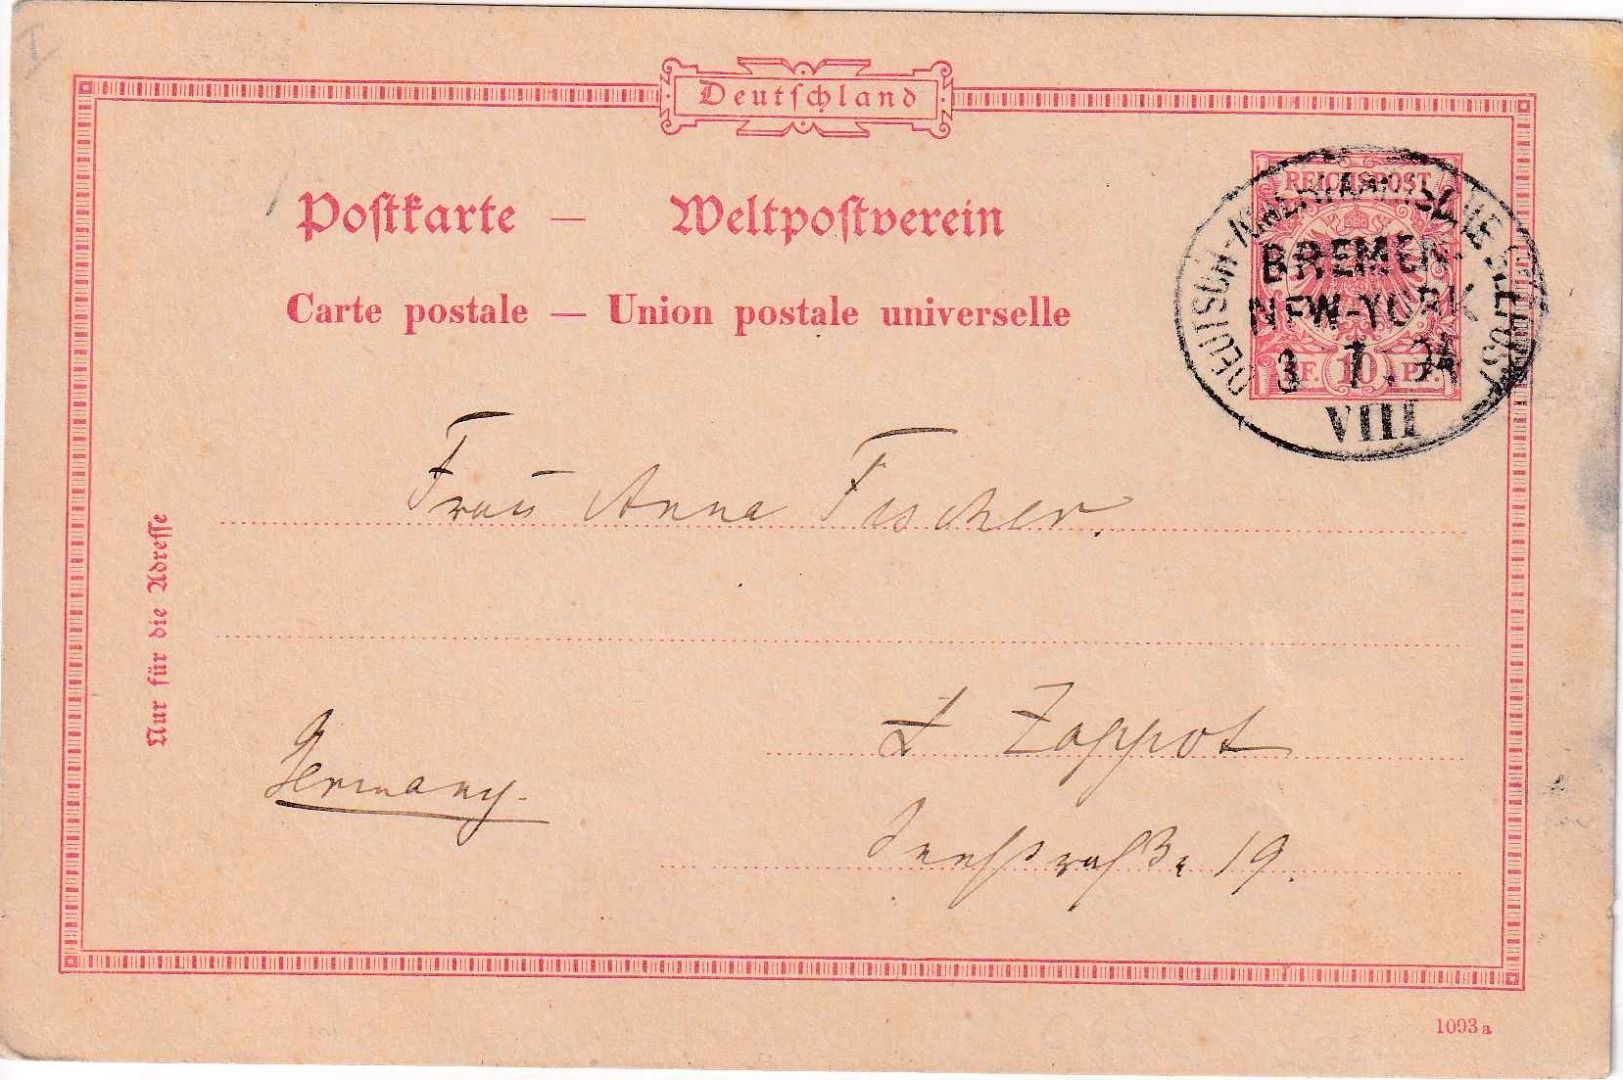 Deutschland
Postkarte — Weltpostverein
Carte postale — Union postale universelle
REICHSPOST
PF. 10 PF.
DEUTSCH-AMERIKANISCHE SEEPOST
BREMEN
NEW-YORK
3 7. 94
VIII
Frau Anna Fischer.
Nur für die Adresse
Zoppot
Germany.
Seestraße 19.
1093a